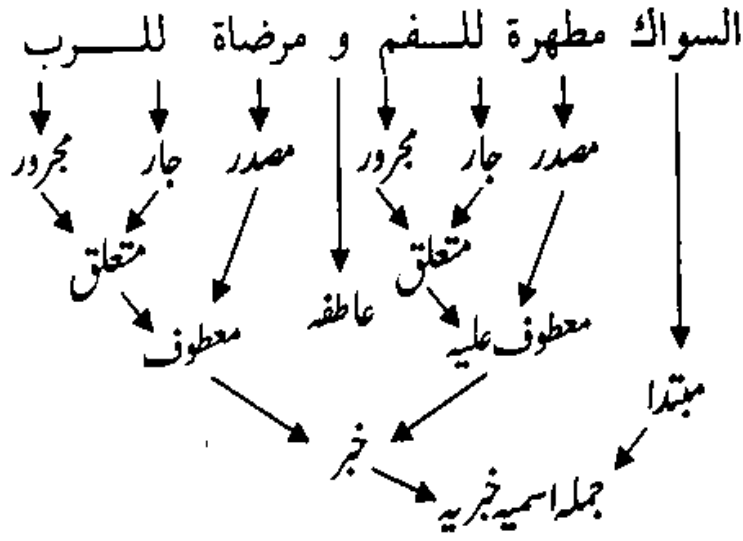 السواك مطهرة للفم و مرضاة للرب
مصدر جار مجرور مصدر جار مجرور
متعلق متعلق
معطوف علیہ عاطفہ معطوف
مبتدا
خبر
جملہ اسمیہ خبریہ